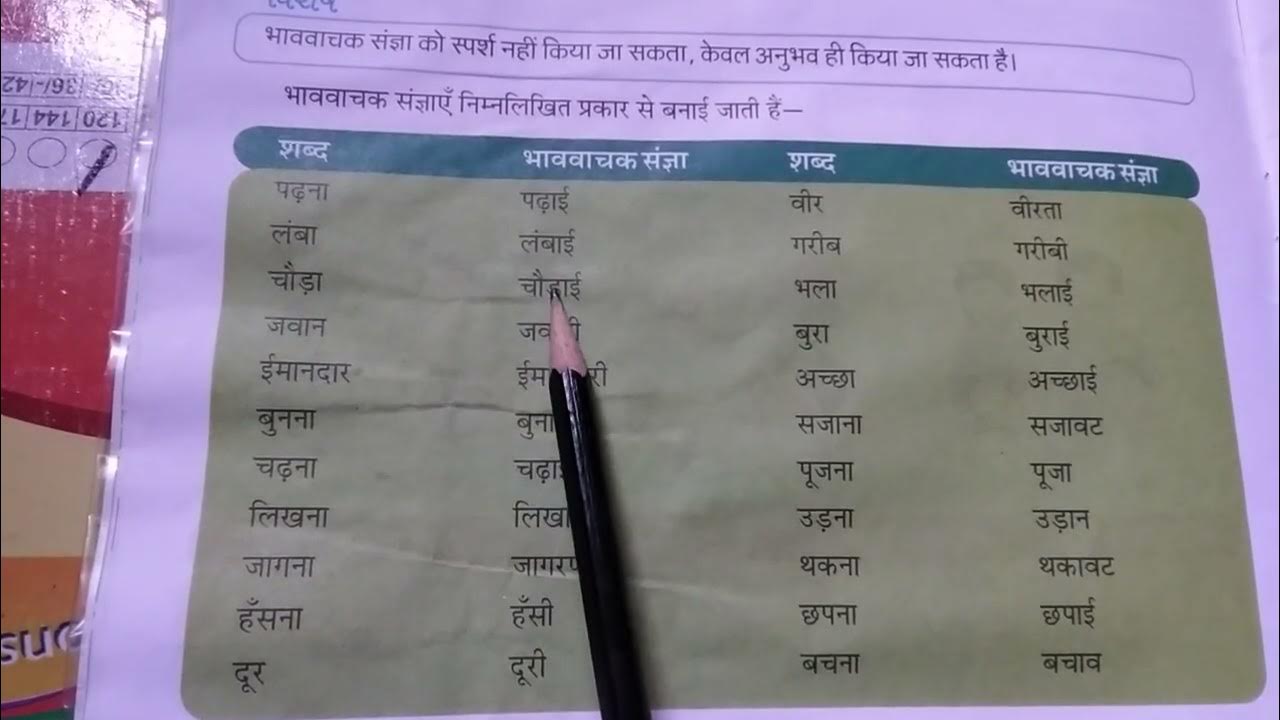 भाववाचक संज्ञा को स्पर्श नहीं किया जा सकता, केवल अनुभव ही किया जा सकता है।
भाववाचक संज्ञाएँ निम्नलिखित प्रकार से बनाई जाती हैं—
शब्द भाववाचक संज्ञा शब्द भाववाचक संज्ञा
पढ़ना पढ़ाई वीर वीरता
लंबा लंबाई गरीब गरीबी
चौड़ा चौड़ाई भला भलाई
जवान बुरा बुराई
ईमानदार अच्छा अच्छाई
बुनना सजाना सजावट
चढ़ना पूजना पूजा
लिखना उड़ना उड़ान
जागना थकना थकावट
हँसना हँसी छपना छपाई
दूर दूरी बचना बचाव
36/-42
120 144